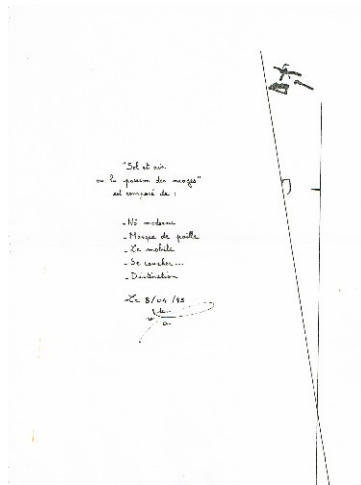 "Sol et air
ou la passion des nuages"
est composé de :
- Nô moderne
- Masque de paille
- Le mobile
- Se coucher...
- Destination
Le 8/04/95